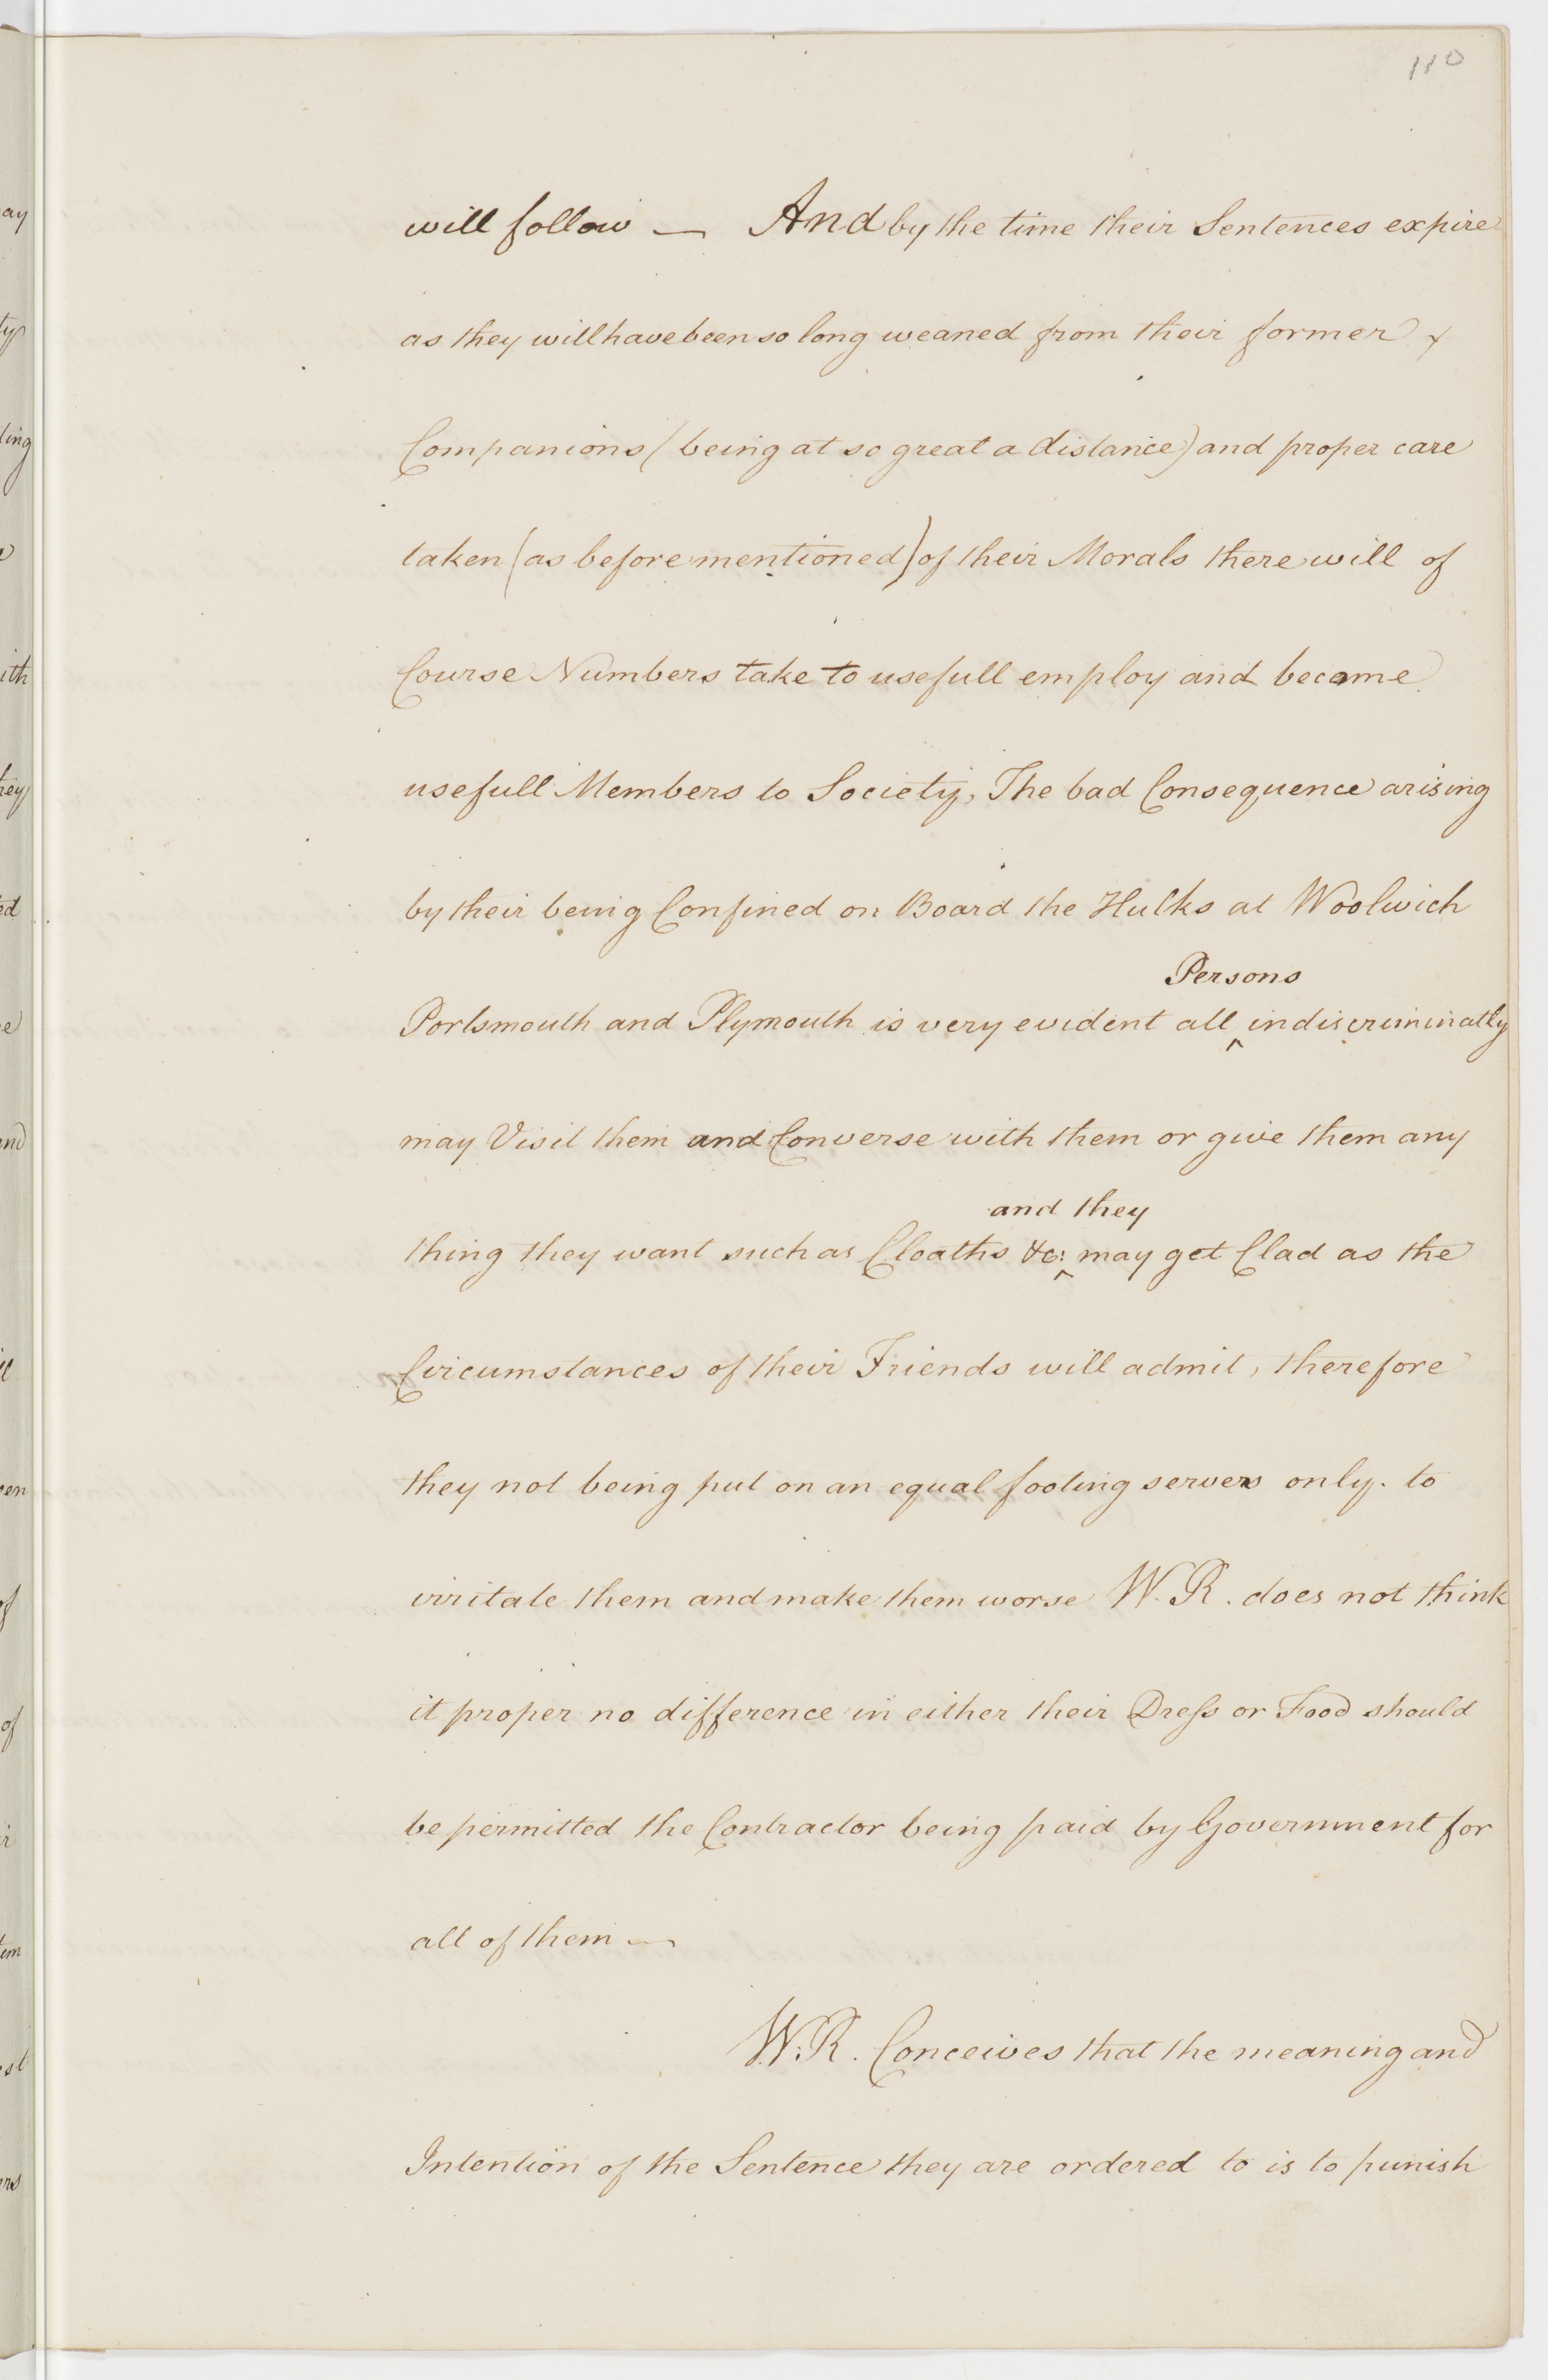 110
will follow — And by the time their Sentences expire
as they will have been so long weaned from their former
Companions (being at so great a distance) and proper care
taken (as before mentioned) of their Morals there will of
Course Numbers take to usefull employ and become
usefull Members to Society, The bad Consequence arising
by their being Confined on Board the Hulks at Woolwich
Persons
Portsmouth and Plymouth is very evident all ^ indiscriminatly
may Visit them and Converse with them or give them any
and they
thing they want such as Cloaths &c: ^ may get Clad as the
Circumstances of their Friends will admit, therefore
they not being put on an equal footing serves only. to
irritate them and make them worse W. R. does not think
it proper no difference in either their Dress or Food should
be permitted the Contractor being paid by Government for
all of them —
W. R. Conceives that the meaning and
Intention of the Sentence they are ordered to is to punish